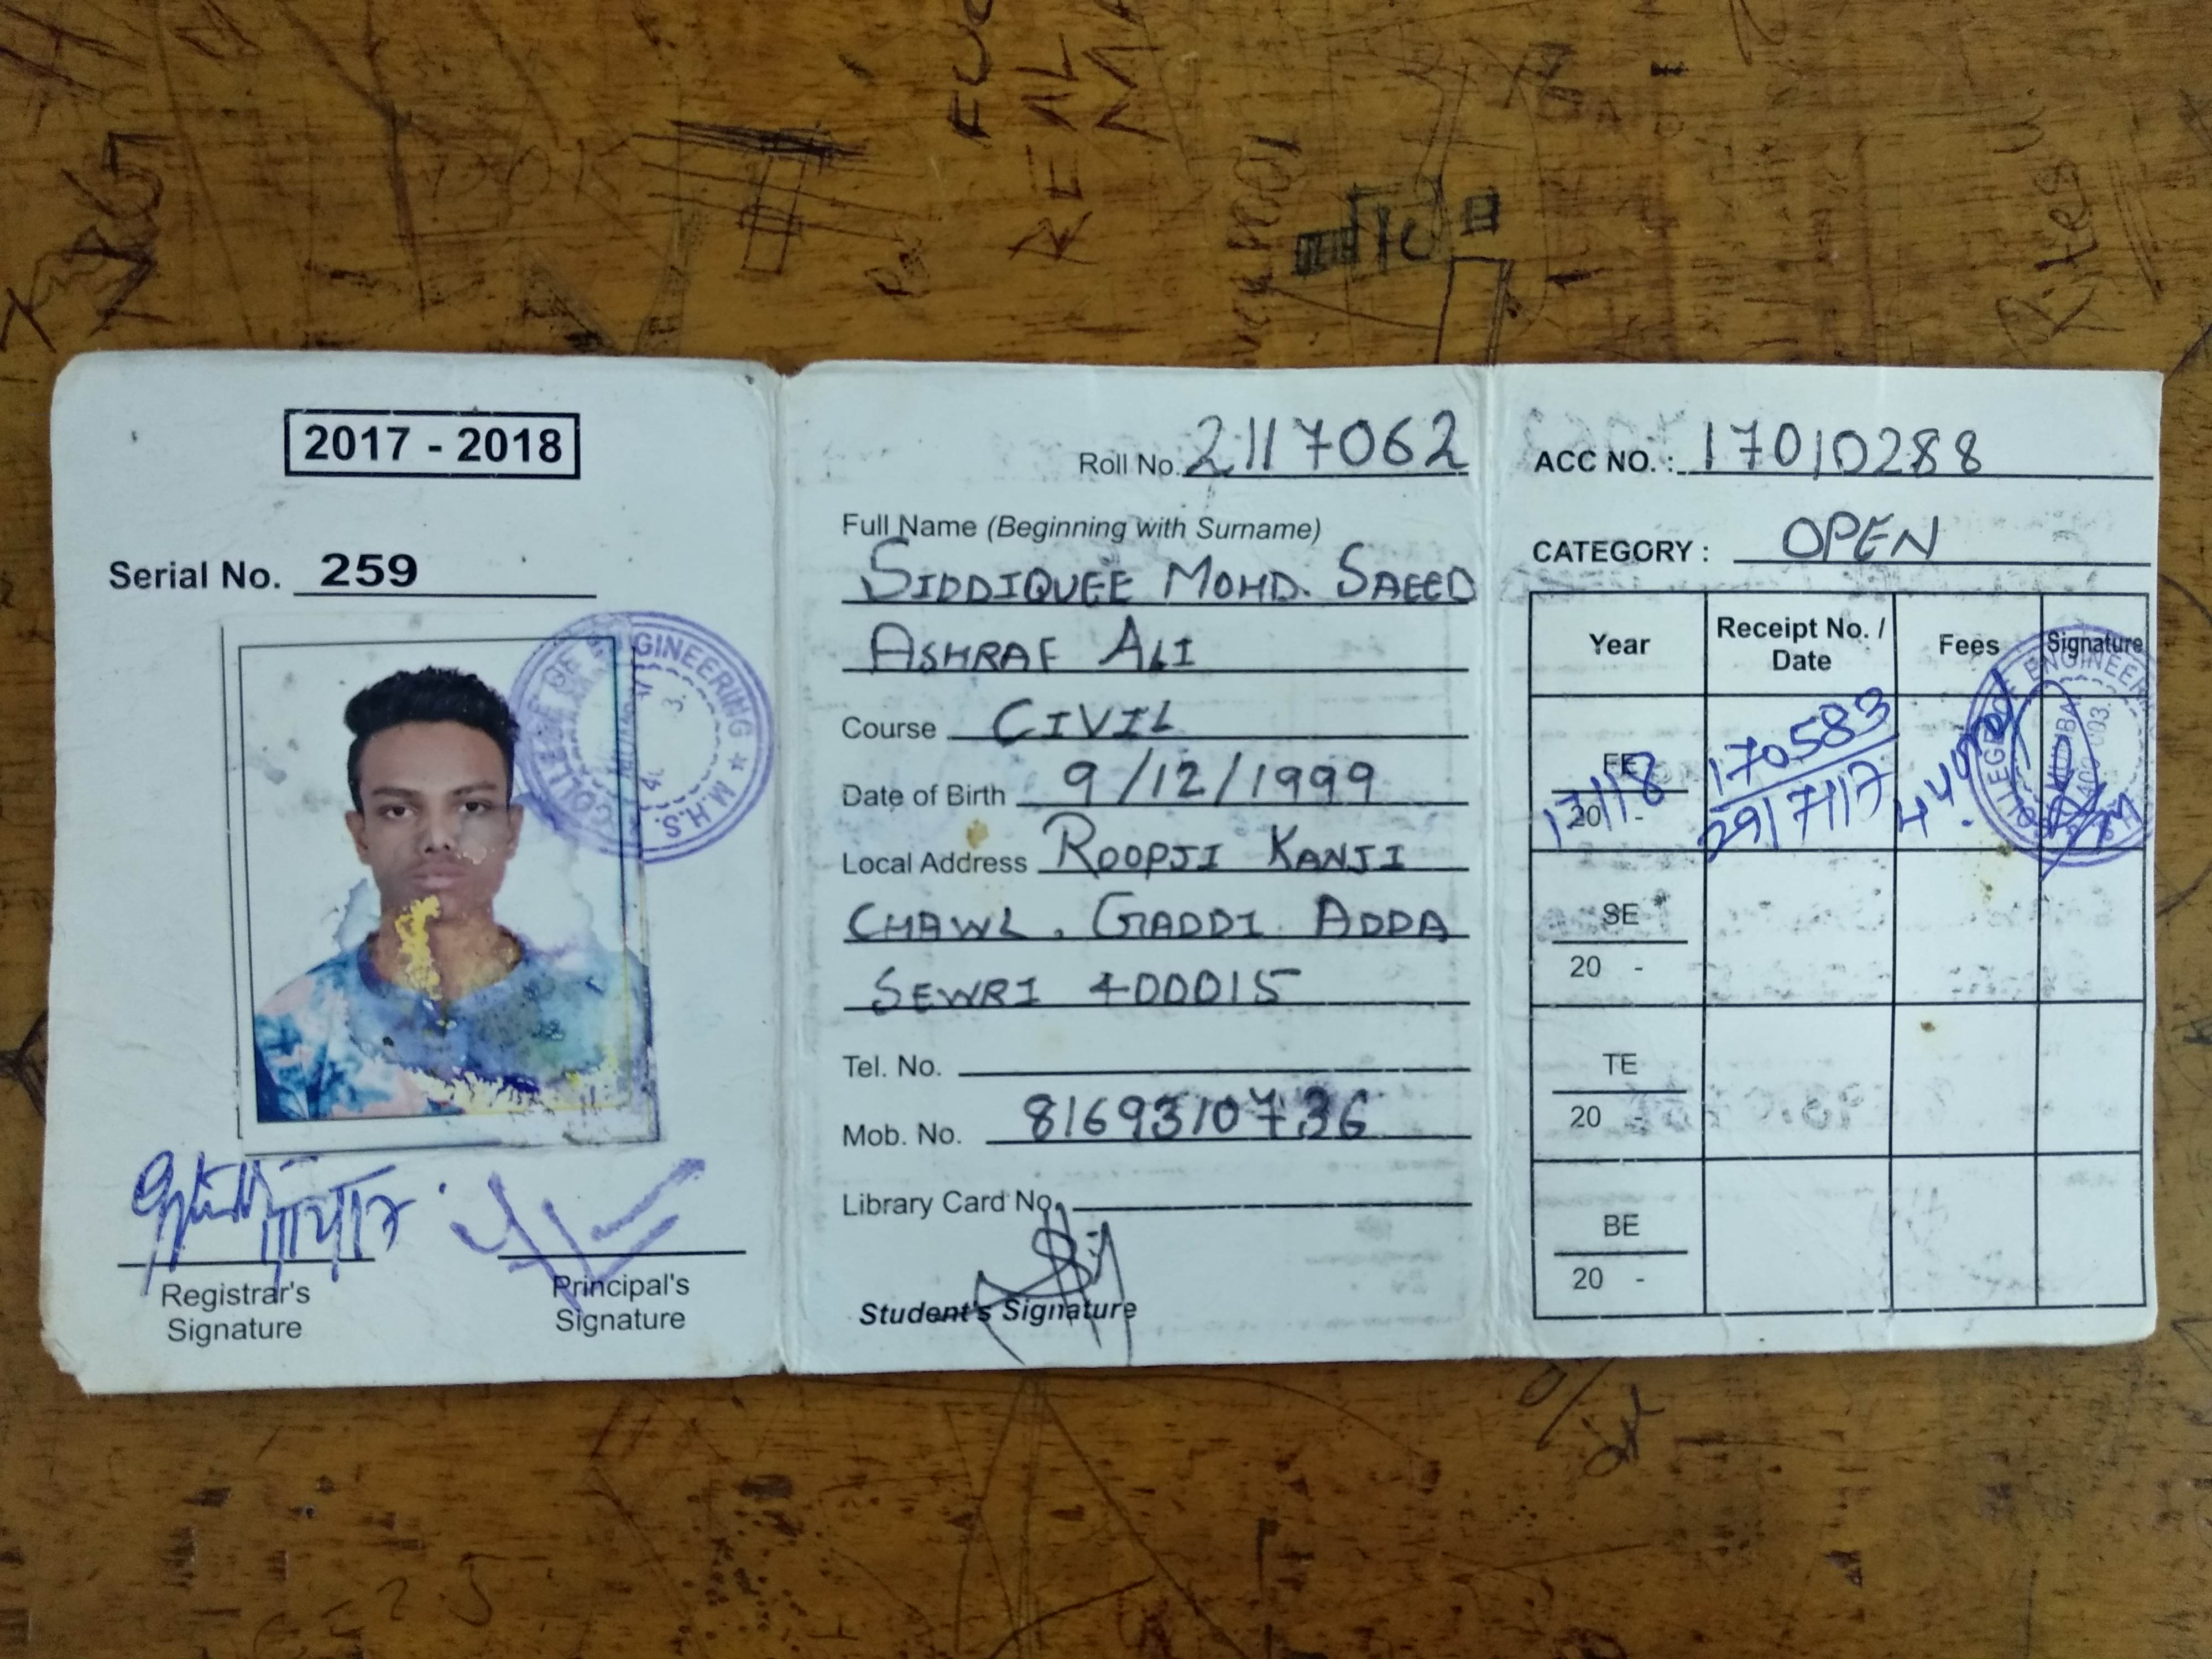 2017 - 2018
Serial No. 259
COLLEGE OF ENGINEERING ★ M.H.S.
Registrar's
Signature
Principal's
Signature
Roll No. 2117062
Full Name (Beginning with Surname)
SIDDIQUEE MOHD. SAEED
ASHRAF ALI
Course CIVIL
Date of Birth 9/12/1999
Local Address ROOPJI KANJI
CHAWL. GADDI ADDA
SEWRI 400015
Tel. No.
Mob. No. 8169310736
Library Card No.
Student's Signature
ACC NO. : 17010288
CATEGORY : OPEN
Year Receipt No. / Date Fees Signature
FE 20 - 17/18 170583 29/7/17
SE
20 -
TE
20 -
BE
20 -
REAL